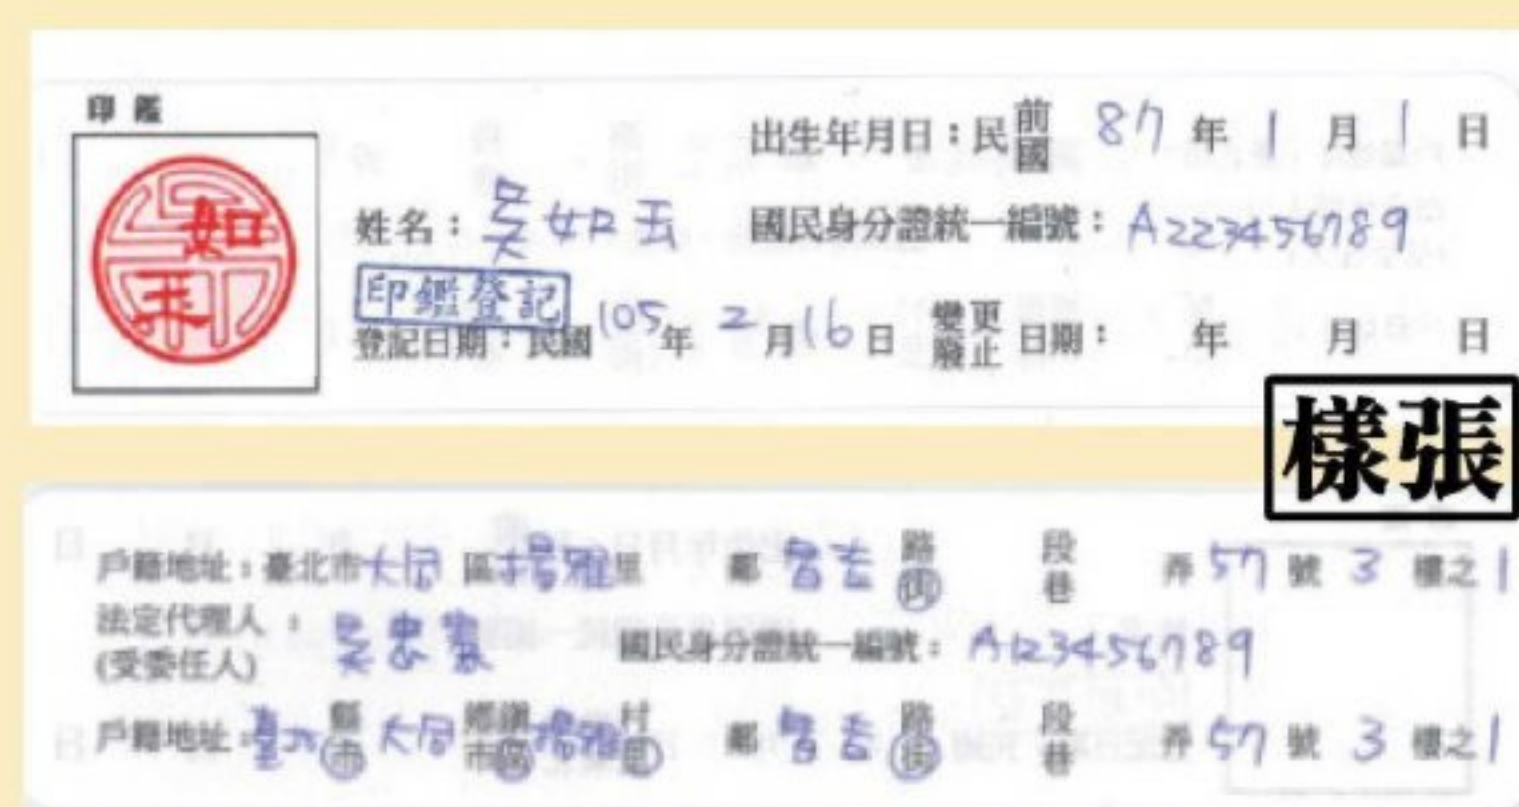 印鑑
如玉
出生年月日：民前國 87 年 1 月 1 日
姓名：吳如玉 國民身分證統一編號：A223456789
印鑑登記
登記日期：民國 105 年 2 月 16 日 變更廢止日期： 年 月 日
樣張
戶籍地址：臺北市大同區揚雅里 鄰 路街 段巷 弄 57 號 3 樓之 1
法定代理人：吳忠
(受委任人) 國民身分證統一編號：A123456789
戶籍地址：臺北縣市 大同 鄉鎮市區 揚雅 村里 鄰 路街 段巷 弄 57 號 3 樓之 1